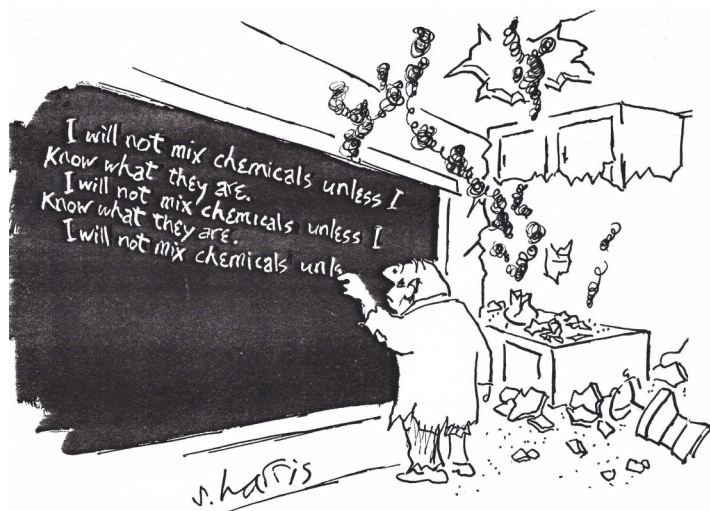 I will not mix chemicals unless I
Know what they are.
I will not mix chemicals unless I
Know what they are.
I will not mix chemicals unle
s. harris